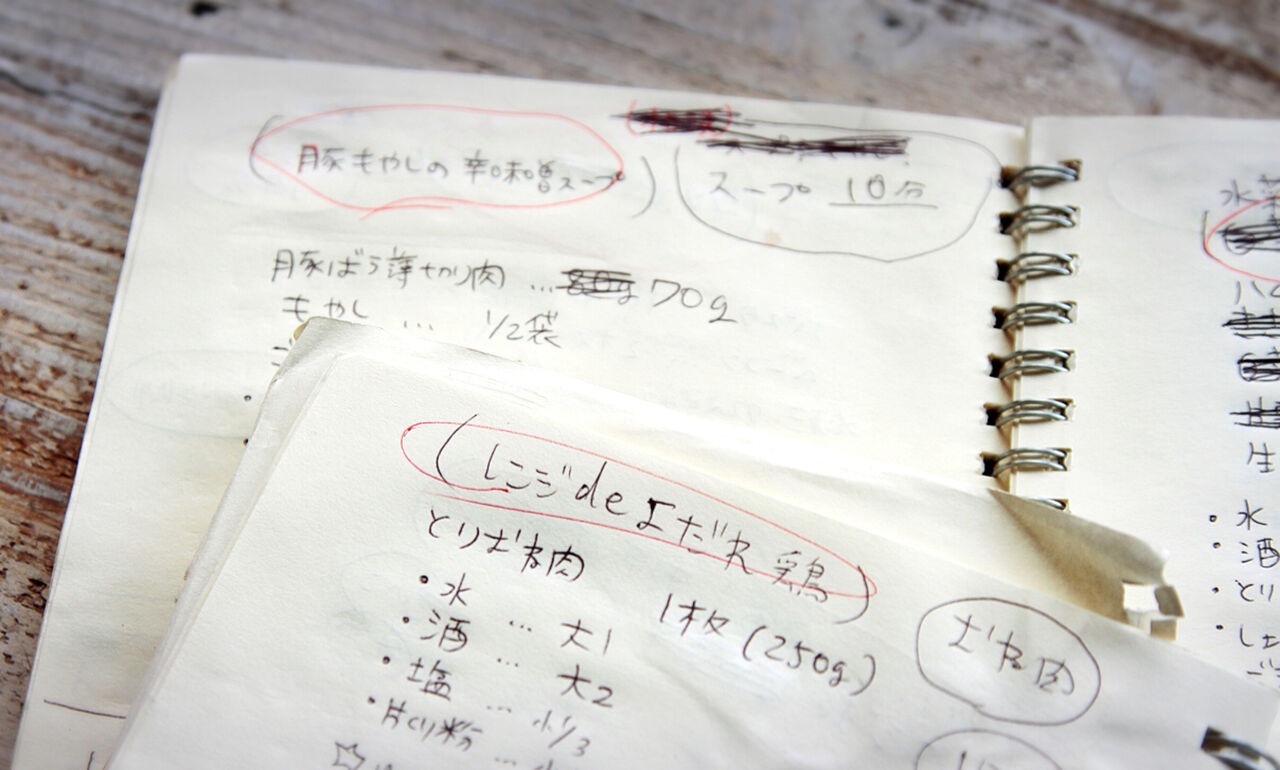 (豚もやしの 辛味噌スープ)
スープ 10分
豚ばら薄切り肉 … 70g
もやし … 1/2袋
(レンジdeよだれ鶏)
とりむね肉 1枚(250g)
・水 … 大1
・酒 … 大2
・塩 … 小1/3
・片くり粉 … 小
☆
むね肉
水
ハム
生
・水
・酒
・とり
・しょ